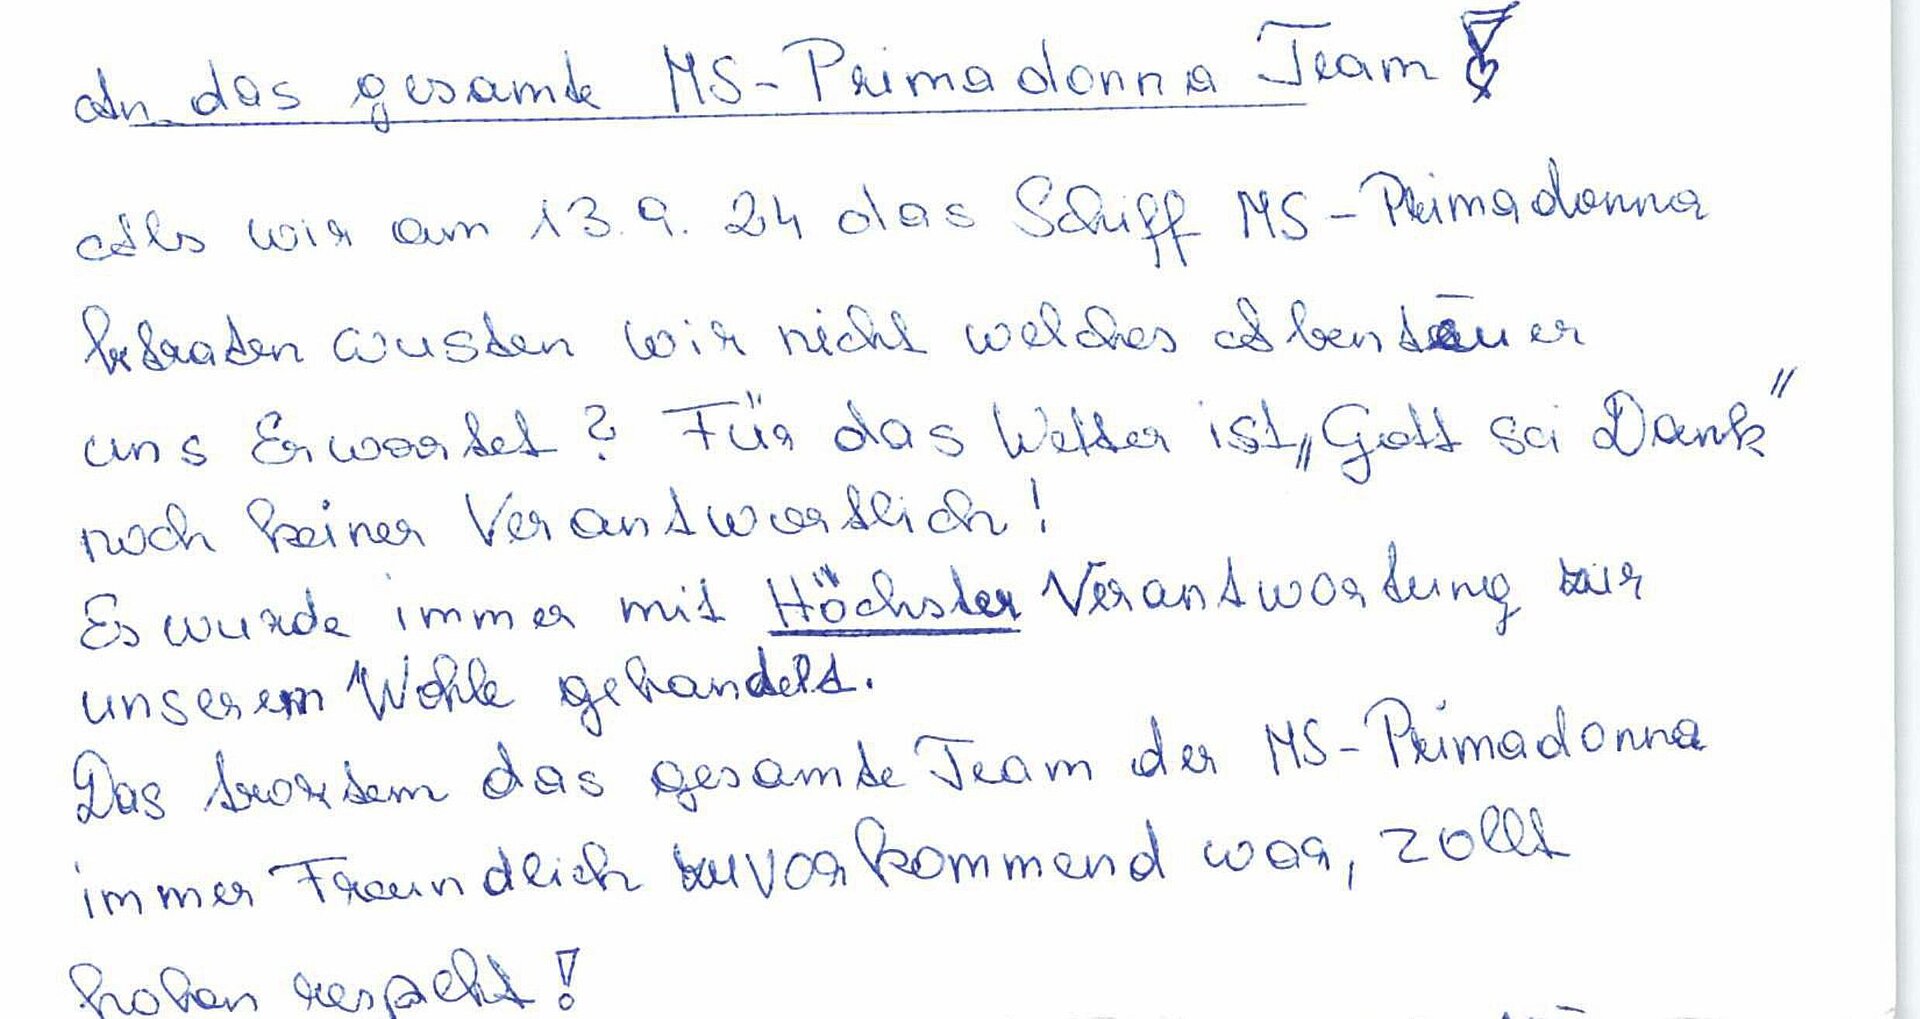 An das gesamte MS-Primadonna Team!
Als wir am 13.9.24 das Schiff MS-Primadonna
betraten wusten wir nicht welches Abenteuer
uns Erwartet? Für das Wetter ist „Gott sei Dank"
noch keiner Verantwortlich!
Es wurde immer mit Höchster Verantwortung zur
unserem Wohle gehandelt.
Das trozdem das gesamte Team der MS-Primadonna
immer Freundlich zuvorkommend war, zollt
hohen respekt!